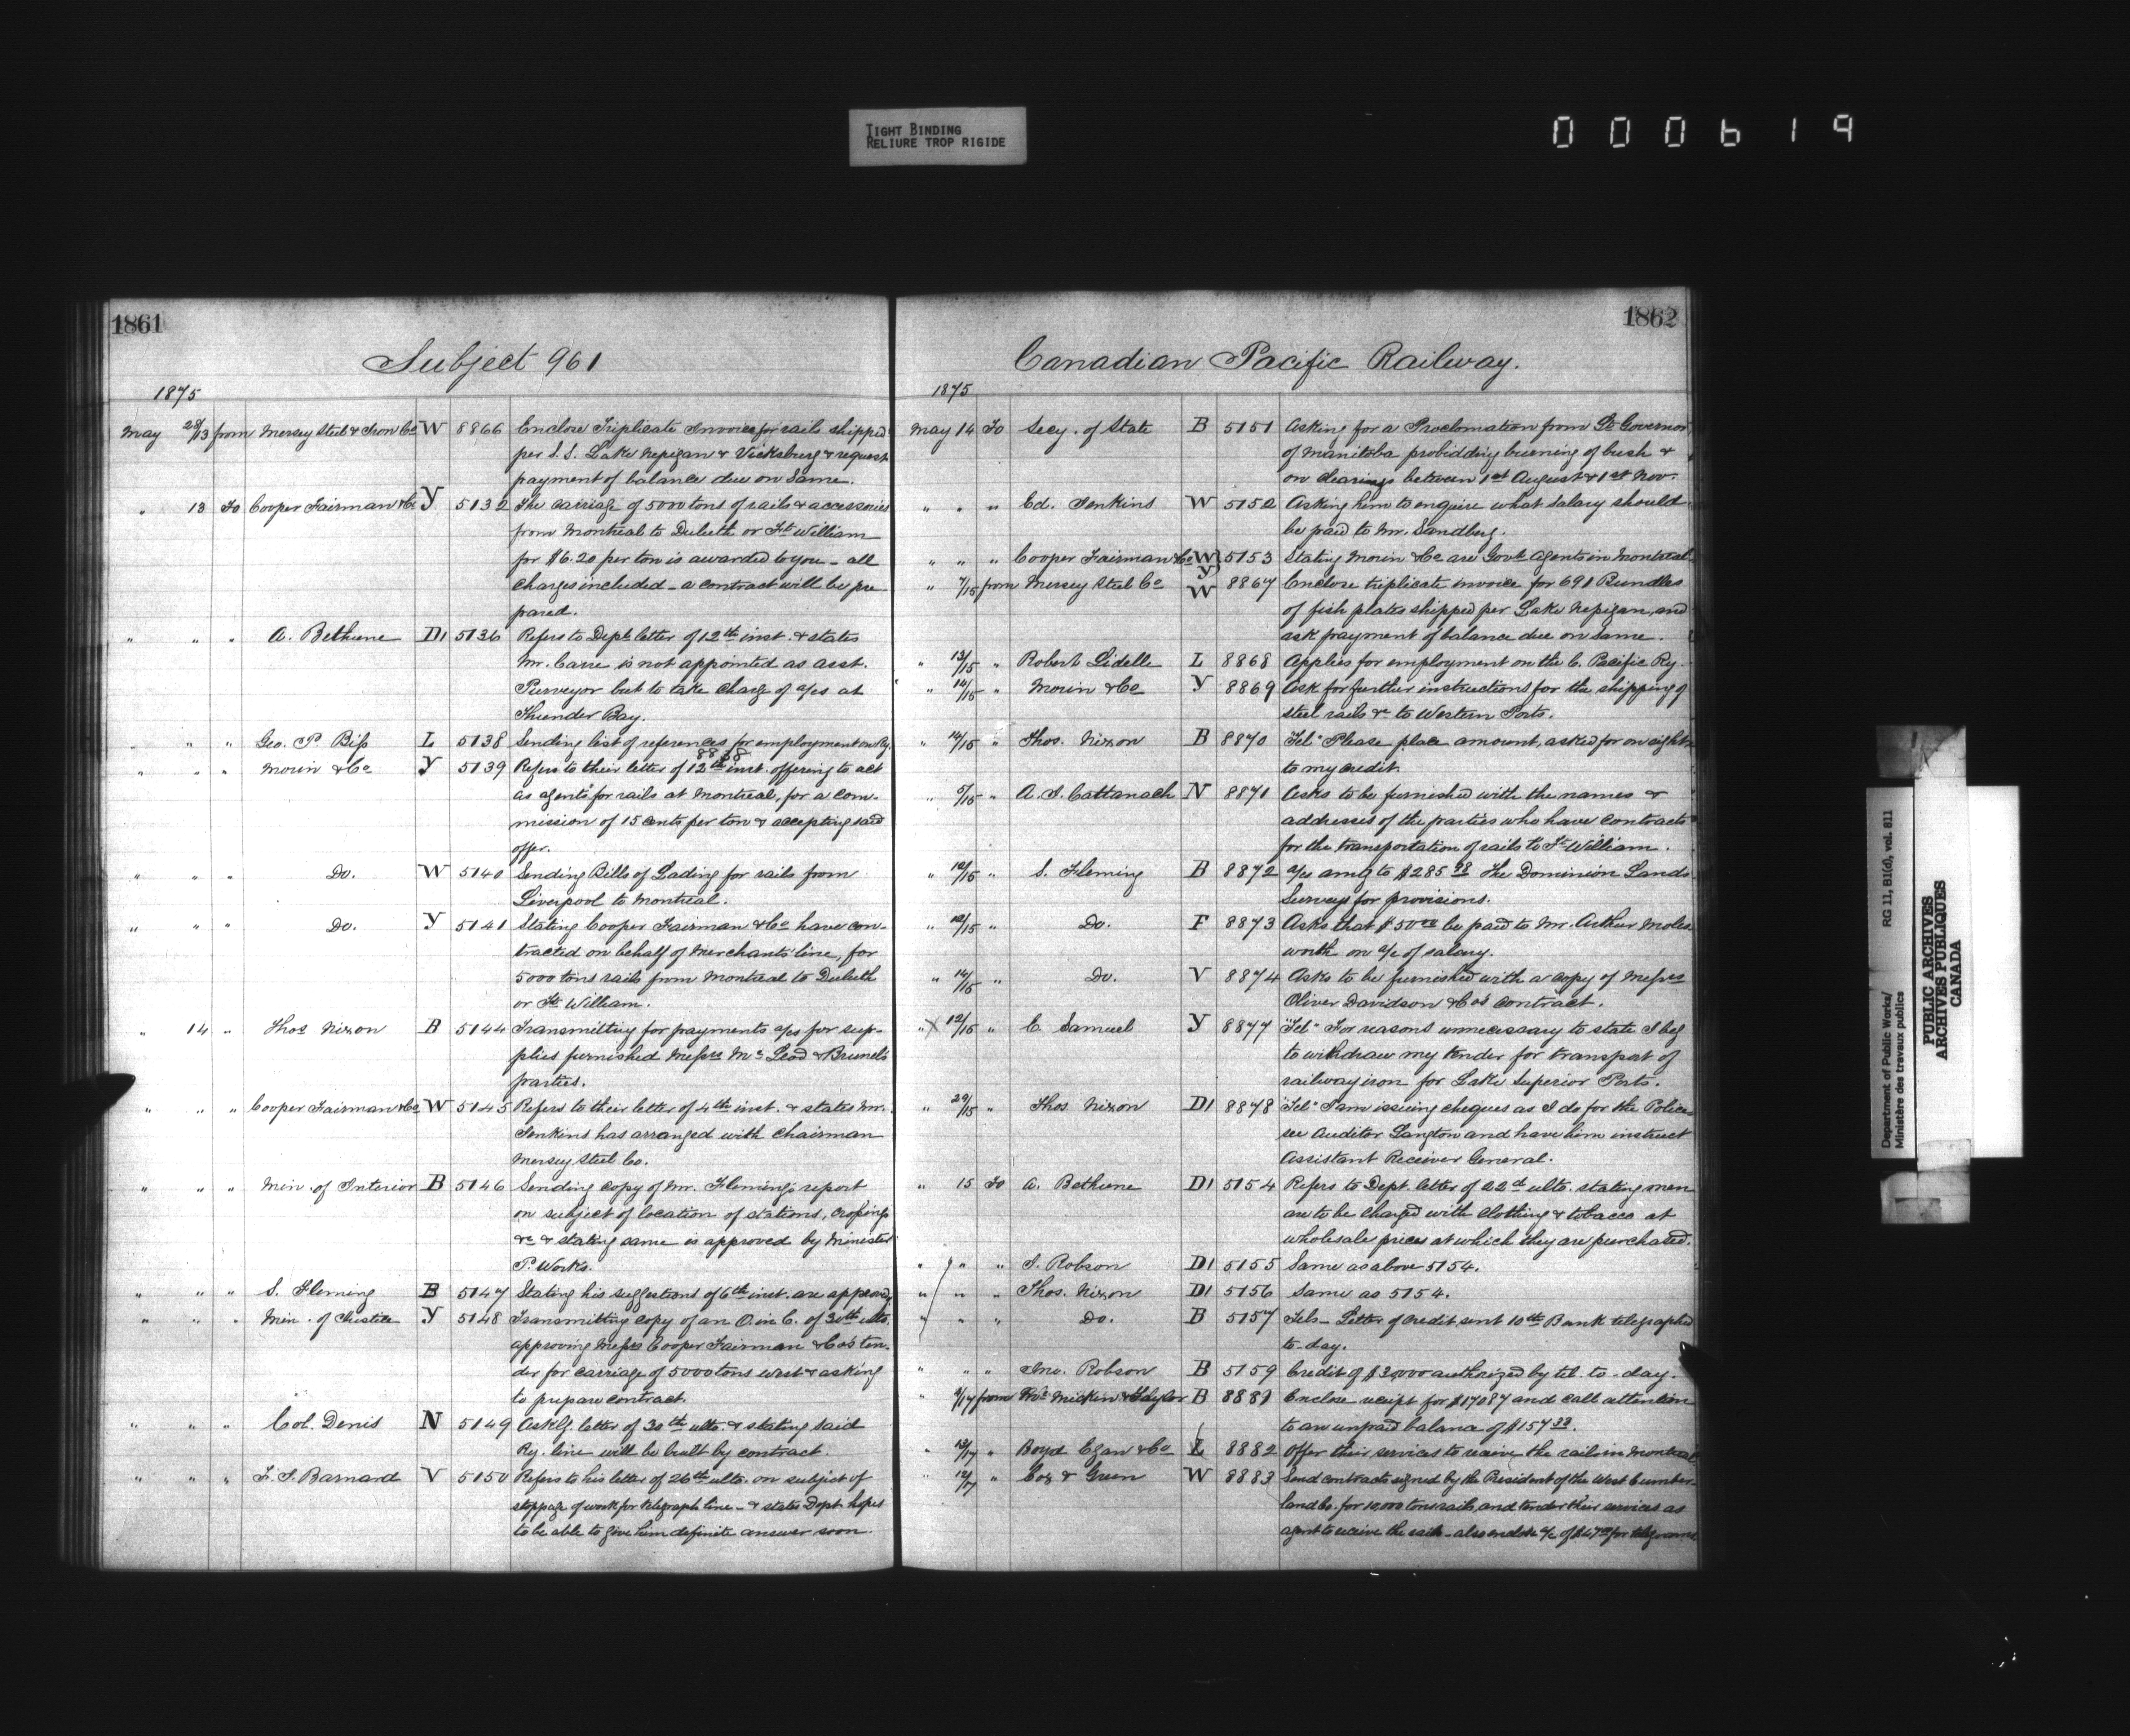 TIGHT BINDING
RELIURE TROP RIGIDE
000619
1861
Subject 961
1875
May 28/13 from Mersey Steel & Iron Co W 8866 Enclose Triplicate Invoices for rails shipped
per S.S. Lake Nepigan & Vicksburg & request
payment of balance due on Same.
" 13 To Cooper Fairman & Co Y 5132 The carriage of 5000 tons of rails & accessories
from Montreal to Duluth or Ft. William
for $6.20 per ton is awarded to you - all
charges included - a contract will be pre
pared.
" " " A. Bethune D1 5136 Refers to Dept letter of 12th inst. & states
Mr. Carre is not appointed as asst.
Purveyor but to take charge of a/cs at
Thunder Bay.
" " " Geo. P. Biss L 5138 Sending list of references for employment on Ry.
8858
" " " Morin & Co Y 5139 Refers to their letter of 12th inst. offering to act
as agents for rails at Montreal, for a com-
mission of 15 cents per ton & accepting said
offer.
" " " Do. W 5140 Sending Bills of Lading for rails from
Liverpool to Montreal.
" " " Do. Y 5141 Stating Cooper Fairman & Co have con-
tracted on behalf of Merchants' line, for
5000 tons rails from Montreal to Duluth
or Ft. William.
" 14 " Thos Nixon B 5144 Transmitting for payments a/cs for sup-
plies furnished Messrs McLeod & Brunel's
parties.
" " " Cooper Fairman & Co W 5145 Refers to their letter of 4th inst. & states Mr.
Jenkins has arranged with Chairman
Mersey Steel Co.
" " " Min. of Interior B 5146 Sending copy of Mr. Fleming's report
on subject of location of stations, crossings
&c & stating same is approved by Minister
P. Works.
" " " S. Fleming B 5147 Stating his suggestions of 6th inst. are approved
" " " Min. of Justice Y 5148 Transmitting copy of an O. in C. of 30th ulto.
approving Messrs Cooper Fairman & Co's ten-
der for carriage of 5000 tons west & asking
to prepare contract.
" " " Col. Denis N 5149 Ackg. letter of 30th ulto. & stating said
Ry. line will be built by contract.
" " " F. J. Barnard V 5150 Refers to his letter of 26th ulto. on subject of
stoppage of work for telegraph line - & states Dept. hopes
to be able to give him definite answer soon.
1862
Canadian Pacific Railway.
1875
May 14 To Secy. of State B 5151 Asking for a Proclomation from Lt Governor
of Manitoba probidding burning of bush &
on clearings between 1st August & 1st Nov.
" " " Ed. Jenkins W 5152 Asking him to enquire what salary should
be paid to Mr. Sandberg.
" " " Cooper Fairman & Co W Y 5153 Stating Morin & Co are Govt Agents in Montreal
" 7/15 from Mersey Steel Co W 8867 Enclose triplicate invoice for 691 Bundles
of fish plates shipped per Lake Nepigan, and
ask payment of balance due on same.
" 13/15 " Robert Lidelle L 8868 Applies for employment on the C. Pacific Ry.
" 14/15 " Morin & Co Y 8869 Ask for further instructions for the shipping of
steel rails &c to Western Ports.
" 14/15 " Thos. Nixon B 8870 Tel" Please place amount, asked for on eighth
to my credit.
" /15 " A. J. Cattanach N 8871 Asks to be furnished with the names &
addresses of the parties who have contracts
for the transportation of rails to Ft. William.
" 12/15 " S. Fleming B 8872 a/cs amtg to $285 The Dominion Lands
Surveys for provisions.
" 12/15 " Do. F 8873 Asks that $50.00 be paid to Mr. Arthur Moles
worth on a/c of salary.
" 14/15 " Do. V 8874 Asks to be furnished with a copy of Messrs
Oliver Davidson & Co's contract.
" X 12/15 " C. Samuel Y 8877 "Tel" For reasons unnecessary to state I beg
to withdraw my tender for transport of
railway iron for Lake Superior Ports.
" 29/15 " Thos. Nixon D1 8878 "Tel" I am issuing cheques as I do for the Police
see Auditor Langton and have him instruct
Assistant Receiver General.
" 15 To A. Bethune D1 5154 Refers to Dept. letter of 22d ulto. stating men
are to be charged with clothing & tobacco at
wholesale prices at which they are purchased.
" " " J. Robson D1 5155 Same as above 5154.
" " " Thos. Nixon D1 5156 Same as 5154.
" " " Do. B 5157 Tels - Letter of Credit sent 10th Bank telegraphed
to-day.
" " " Jno. Robson B 5159 Credit of $3,000 authorized by tel. to-day.
" /17 from Mickin & Taylor B 8881 Enclose receipt for $17087 and call attention
to an unpaid balance of $157.33.
" 13/17 " Boyd Egan & Co L 8882 Offer their services to receive the rails in Montreal
" 12/17 " Cox & Green W 8883 Send contracts signed by the President of the West Cumber-
land Co. for 10,000 tons rails, and tender their services as
agent to receive the rails - also enclose a/c of $47 for telegrams
Department of Public Works/ RG 11, B1(d), vol. 811
Ministère des travaux publics
PUBLIC ARCHIVES
ARCHIVES PUBLIQUES
CANADA